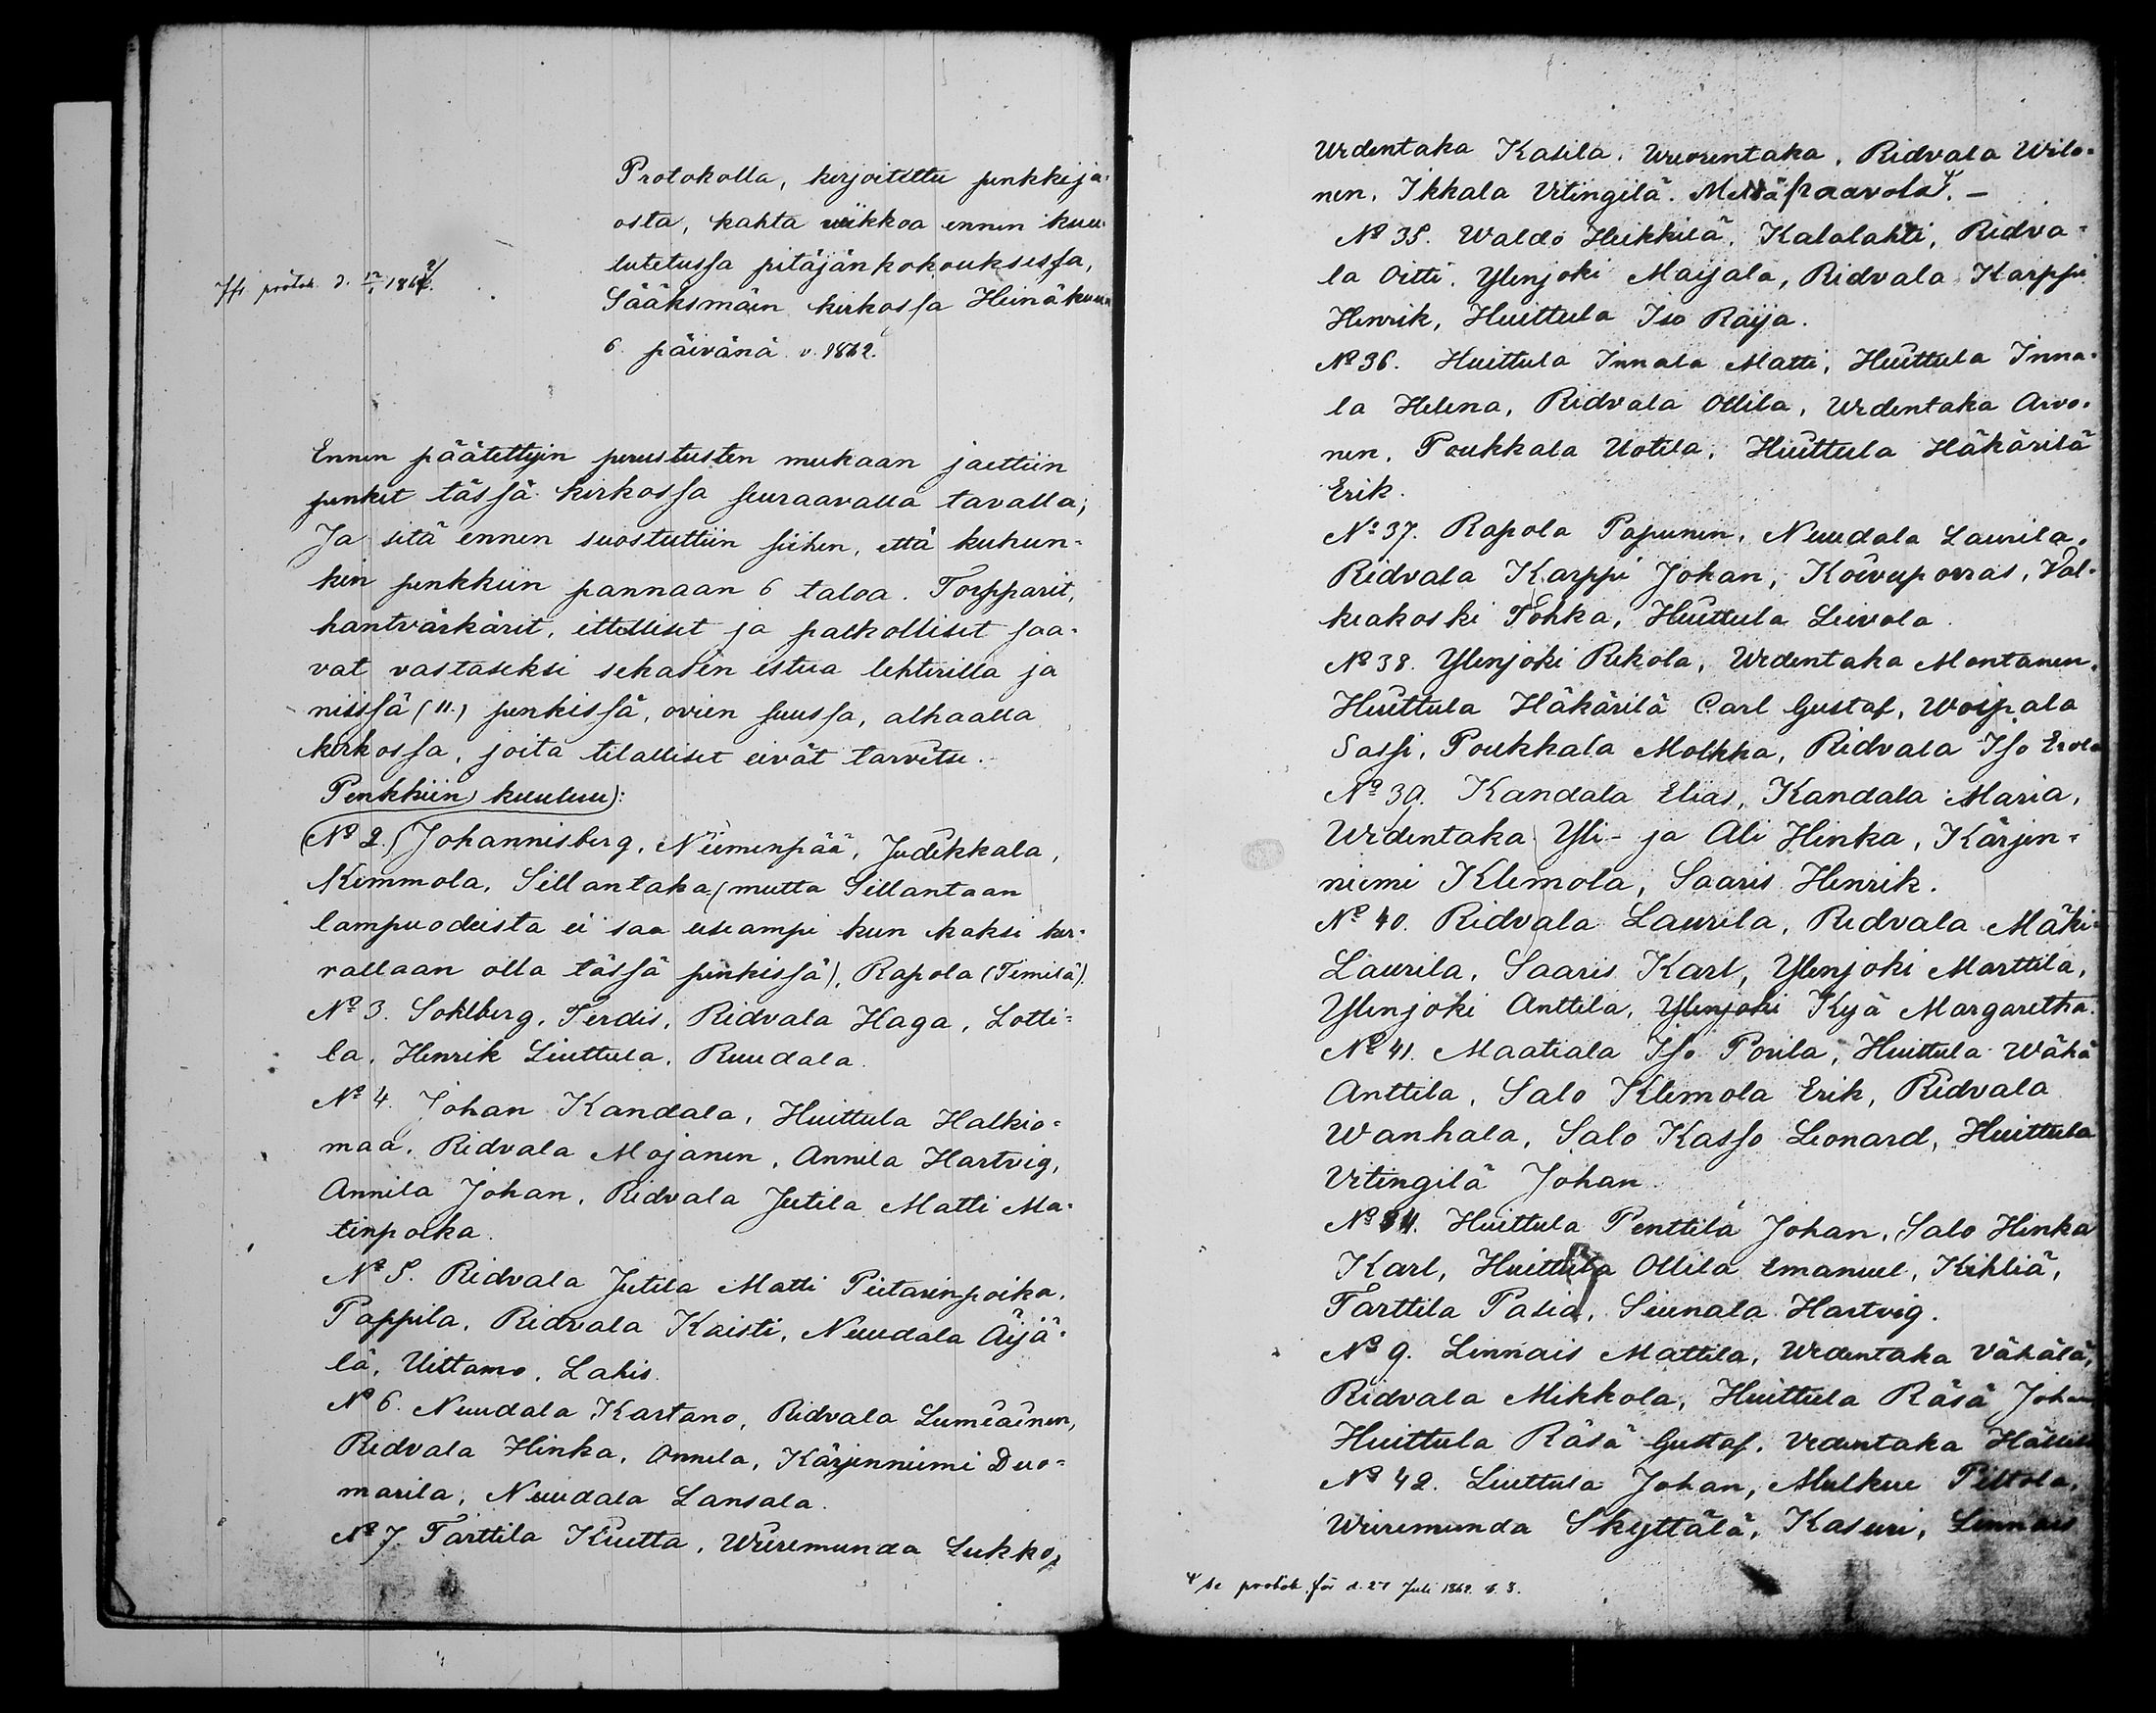 Protokolla, kirjoitettu penkkija-
osta, kahta viikkoa ennen kuu-
lutetussa pitäjänkokouksessa,
Sääksmäin kirkossa Heinäkuun
6. päivänä v. 1862.
protok. d. 1862.
Ennen päätettyin perustusten mukaan jaettiin
penkit tässä kirkossa seuraavalla tavalla;
Ja sitä ennen suostuttiin siihen, että kuhun-
kin penkkiin pannaan 6 taloa. Torpparit,
hantvärkärit, ittelliset ja palkolliset saa-
vat vastaseksi sekasin istua lehterillä ja
niissä (11.) penkissä, ovien suussa, alhaalla
kirkossa, joita tilalliset eivät tarvitse.
Penkkiin kuuluu:
No 2. Johannisberg, Niemenpää, Judikkala,
Kemmola, Sillantaka, (mutta Sillantaan
lampuodeista ei saa useampi kun kaksi ker-
rallaan olla tässä penkissä), Rapola (Timilä).
No 3. Sohlberg, Terdis, Ridvala Haga, Lotti-
la, Henrik Liuttula, Ruudala.
No 4. Johan Kandala, Huittula Halkio-
maa, Ridvala Mojanen, Annila Hartvig,
Annila Johan, Ridvala Jutila Matti Ma-
tinpoika.
No 5. Ridvala Jutila Matti Pietarinpoika,
Pappila, Ridvala Kaisti, Nuudala Äijä-
lä, Uittamo, Lahis.
No 6. Nuudala Kartano, Ridvala Lumiainen,
Ridvala Hinka, Annila, Kärjenniemi Duo-
marila, Nuudala Lansala.
No 7. Tarttila Kuitta, Wuiremunda Lukko,
Uredentaka Kasila, Wuorentaka, Ridvala Wilo-
nen, Ikkala Vitingilä. Metsäpaavola. –
No 35. Waldo Heikkilä, Kalalahti, Ridva-
la Oitti, Ylenjoki Maijala, Ridvala Karppi
Henrik, Huittula Iso Räija.
No 36. Huittula Innala Matti, Huittula Inna-
la Helena, Ridvala Ollila, Uredentaka Arvo-
nen, Poukkala Uotila, Huittula Häkärilä
Erik.
No 37. Rapola Papunen, Nuudala Laurila,
Ridvala Karppi Johan, Koivuporras, Val-
keakoski Tohka, Huittula Leivola.
No 38. Ylenjoki Rekola, Uredentaka Montanen,
Huittula Häkärilä Carl Gustaf, Woipala
Sassi, Poukkala Molkka, Ridvala Iso Erola
No 39. Kandala Elias, Kandala Maria,
Uredentaka Yli- ja Ali Hinka, Kärjen-
niemi Klemola, Saaris Henrik.
No 40. Ridvala Laurila, Ridvala Mäki-
Laurila, Saaris Karl, Ylenjoki Marttila,
Ylenjoki Anttila, Ylenjoki Kyä Margaretha.
No 41. Maatiala Iso Povila, Huittula Wähä
Anttila, Salo Klemola Erik, Ridvala
Wanhala, Salo Kasso Leonard, Huittula
Vitingilä Johan.
No 34. Huittula Penttilä Johan, Salo Hinka
Karl, Huittula Ollila Emanuel, Kihliä,
Tarttila Pasia, Siunala Hartvig.
No 9. Linnais Mattila, Uredentaka Vähälä,
Ridvala Mikkola, Huittula Räsä Johan
Huittula Räsä Gustaf, Vredentaka Hällilä
No 42. Liuttula Johan, Mulkue Piltola,
Wuiremunda Skyttälä, Kasuri, Linnais
se protok. för d. 27 Juli 1862. § 3.